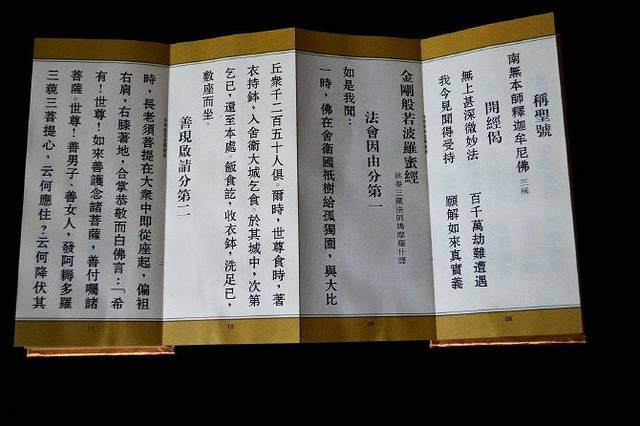 稱聖號
南無本師釋迦牟尼佛 三稱
開經偈
無上甚深微妙法 百千萬劫難遭遇
我今見聞得受持 願解如來真實義
08
金剛般若波羅蜜經
姚秦三藏法師鳩摩羅什譯
法會因由分第一
如是我聞：
一時，佛在舍衛國祇樹給孤獨園，與大比
09
丘眾千二百五十人俱。爾時，世尊食時，著
衣持鉢，入舍衛大城乞食。於其城中，次第
乞已，還至本處。飯食訖，收衣鉢，洗足已，
敷座而坐。
善現啟請分第二
10
時，長老須菩提在大眾中即從座起，偏袒
右肩，右膝著地，合掌恭敬而白佛言：「希
有！世尊！如來善護念諸菩薩，善付囑諸
菩薩。世尊！善男子、善女人，發阿耨多羅
三藐三菩提心，云何應住？云何降伏其
11